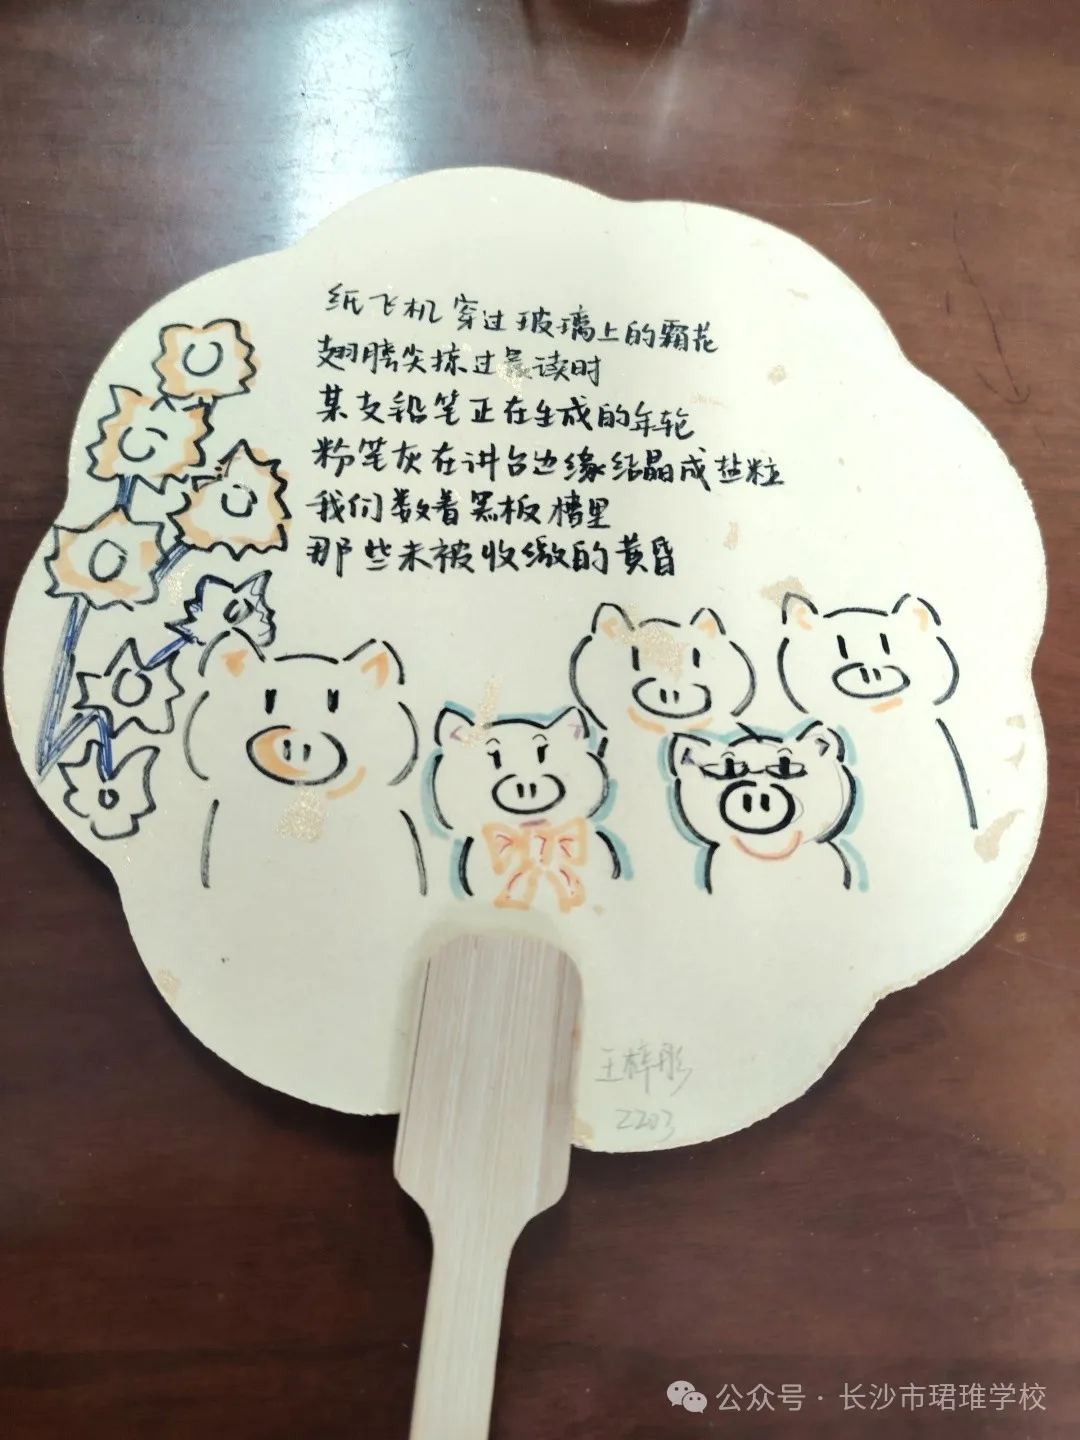 纸飞机穿过玻璃上的霜花
翅膀尖掠过晨读时
某支铅笔正在生成的年轮
粉笔灰在讲台边缘结晶成盐粒
我们数着黑板槽里
那些未被收缴的黄昏
王梓彤
2203
公众号·长沙市珺琟学校